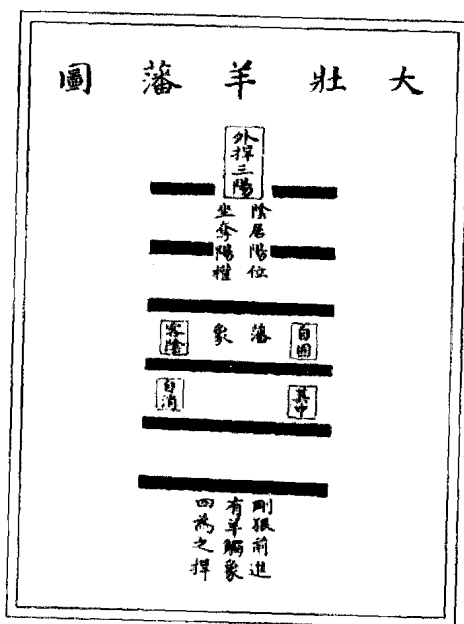 大壯羊藩圖
外捍三陽
陰居陽位
坐奪陽權
藩象
自困
其中
客陰
自消
剛狠前進
有羊觸象
四為之捍